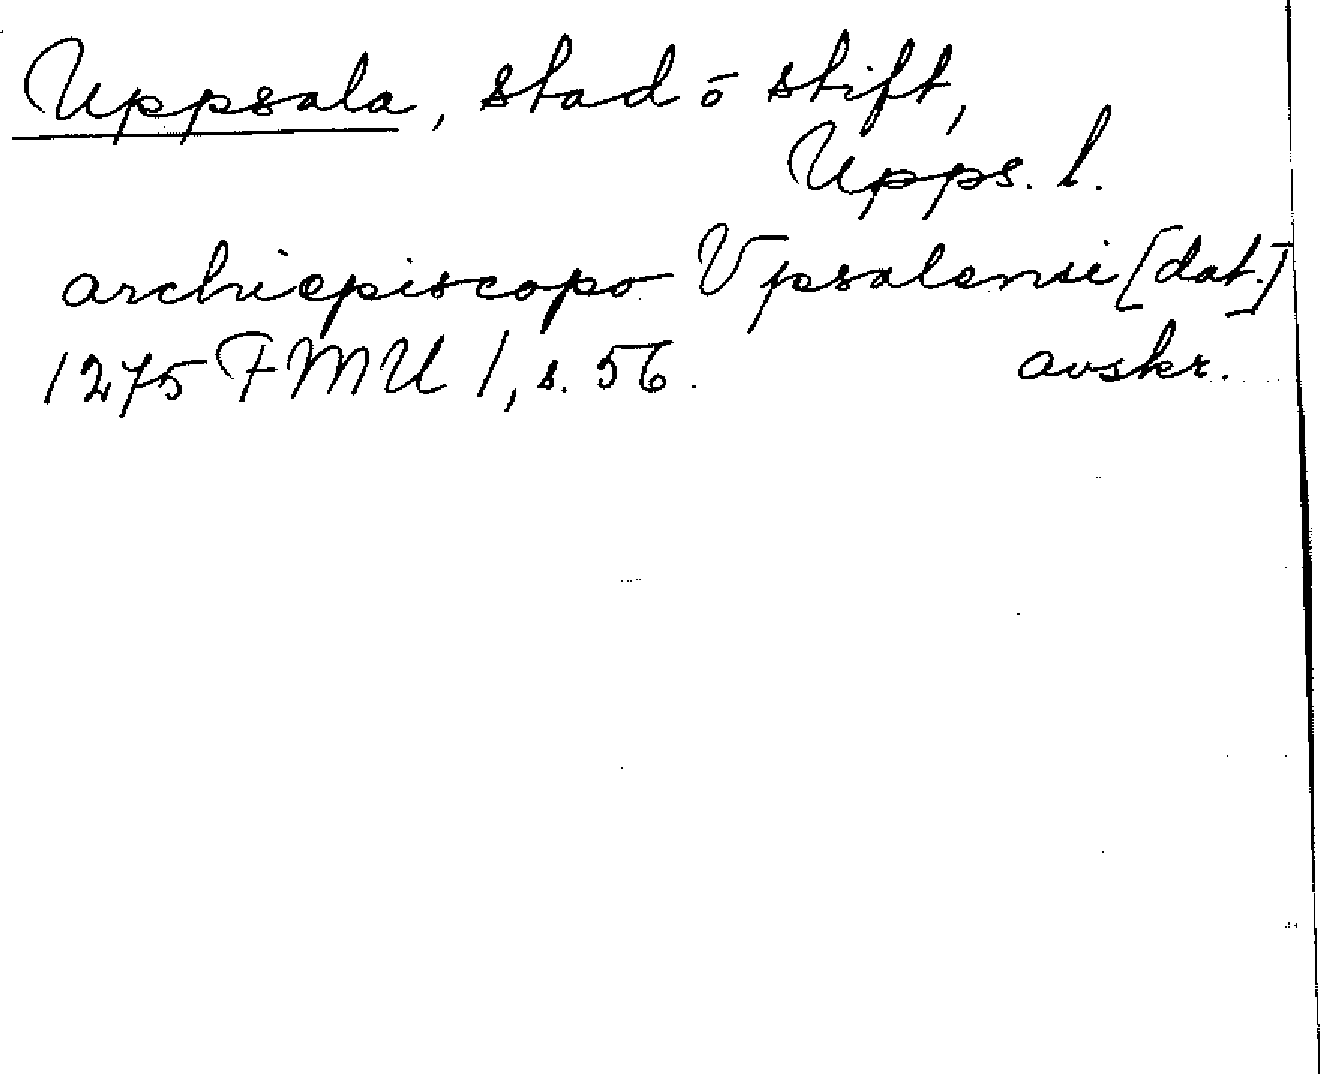 Uppsala, stad o stift,
Upps. l.
archiepiscopo Vpsalensi [dat.]
1275 FMU 1, s. 56. avskr.